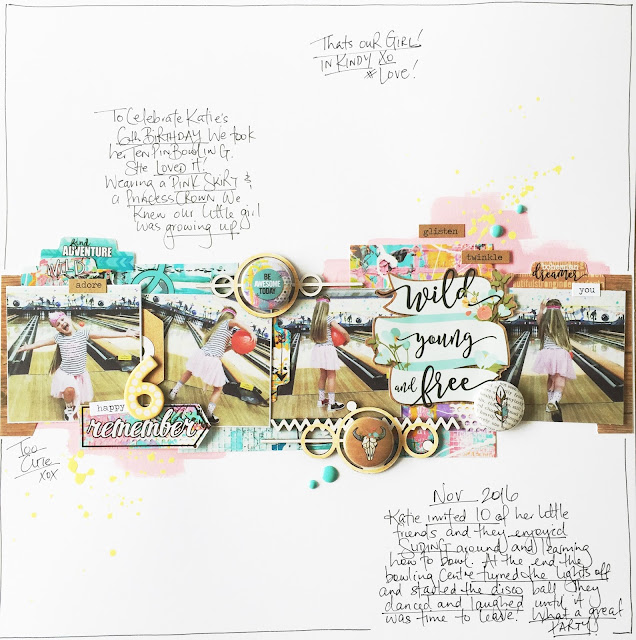 Thats our GIRL!
IN KINDY XO
# LOVE!
To Celebrate Katie's
6th BIRTHDAY We took
her TEN PIN BOWLING.
She LOVED IT!
Wearing a PINK SKIRT &
a PRINCESS CROWN We
Knew our little girl
was growing up
glisten
twinkle
find
ADVENTURE
WILD
adore
BE
AWESOME
TODAY
bohemian
dreamer
you
wild
young
and free
happy
6
remember
Too
Cute
xox
Nov 2016
Katie invited 10 of her little
friends and they enjoyed
SLIDING around and learning
how to bowl. At the end the
bowling Centre turned the lights off
and started the disco ball they
danced and laughed until it
was time to leave. What a great
PARTY